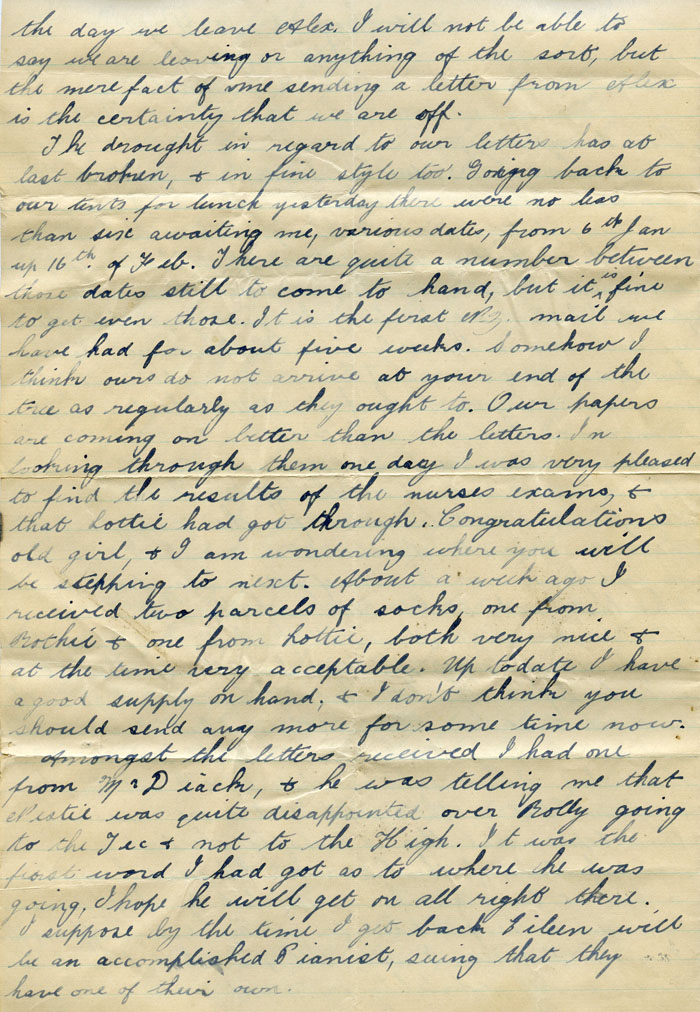 the day we leave Alex. I will not be able to
say we are leaving or anything of the sort, but
the mere fact of me sending a letter from Alex
is the certainty that we are off.
The drought in regard to our letters has at
last broken, & in fine style too. Going back to
our tents for lunch yesterday there were no less
than six awaiting me, various dates, from 6th Jan
up 16th of Feb. There are quite a number between
those dates still to come to hand, but it is fine
to get even those. It is the first N.Z. mail we
have had for about five weeks. Somehow I
think ours do not arrive at your end of the
tree as regularly as they ought to. Our papers
are coming on better than the letters. In
looking through them one day I was very pleased
to find the results of the nurses exams, &
that Lottie had got through. Congratulations
old girl, & I am wondering where you will
be stepping to next. About a week ago I
received two parcels of socks, one from
& one from Lottie, both very nice &
at the time very acceptable. Up to date I have
a good supply on hand, & I don't think you
should send any more for some time now.
Amongst the letters received I had one
from Mr Diack, & he was telling me that
was quite disappointed over Rolly going
to the Tec & not to the High. It was the
first word I had got as to where he was
going, I hope he will get on all right there.
I suppose by the time I get back Eileen will
be an accomplished Pianist, seeing that they
have one of their own.